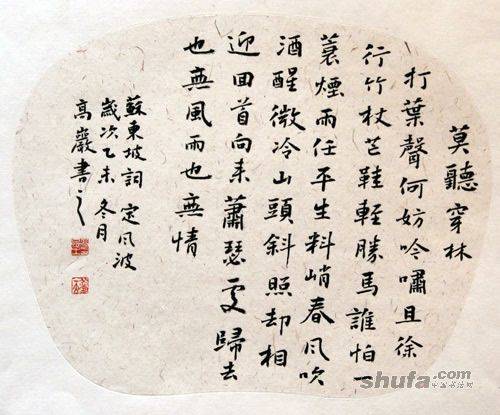 莫聽穿林
打葉聲何妨吟嘯且徐
行竹杖芒鞋輕勝馬誰怕一
蓑煙雨任平生料峭春风吹
酒醒微冷山頭斜照却相
迎回首向来蕭瑟處歸去
也無風雨也無情
蘇東坡詞 定风波
歲次乙未 冬月
高巖書之
shufa.com
中国书法网